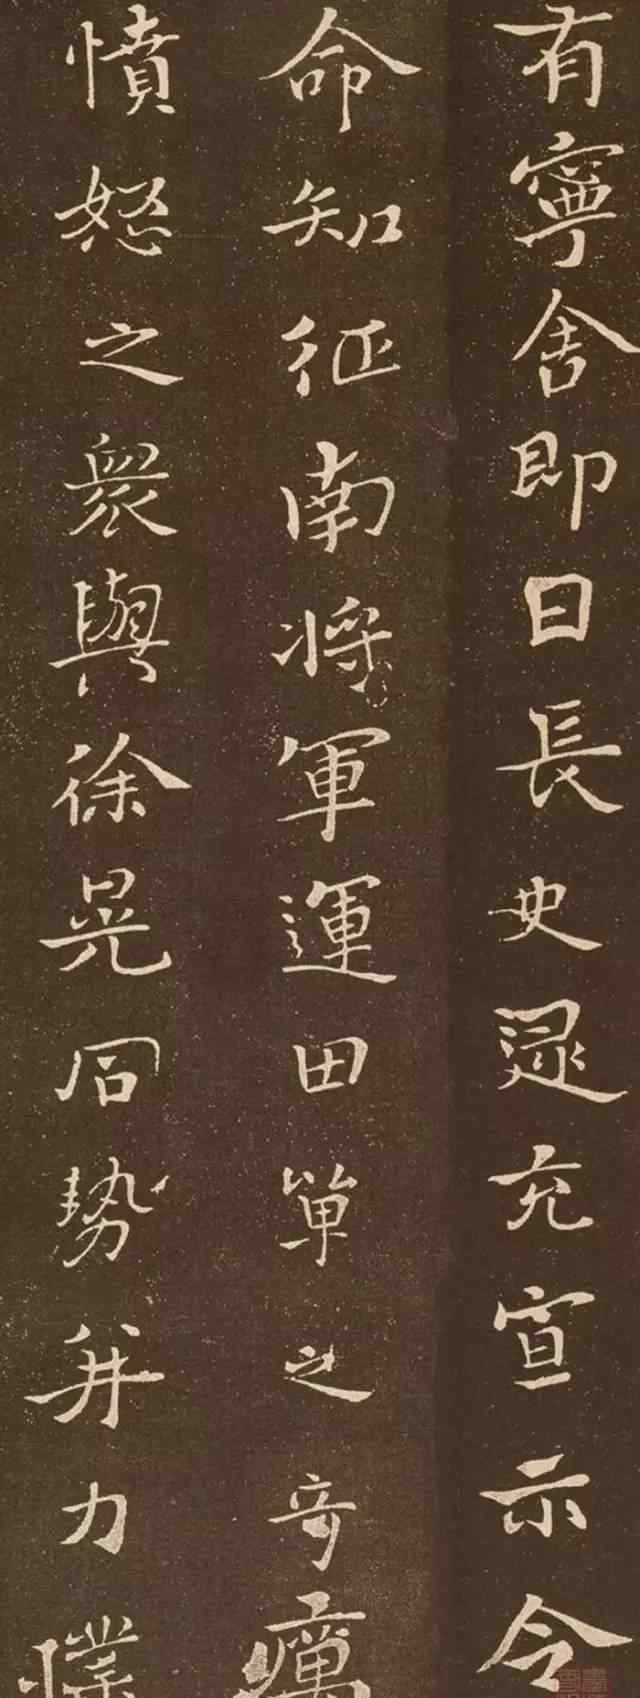 有寧舍即日長史逯充宣示令
命知征南將軍運田單之奇
憤怒之眾與徐晃同勢并力